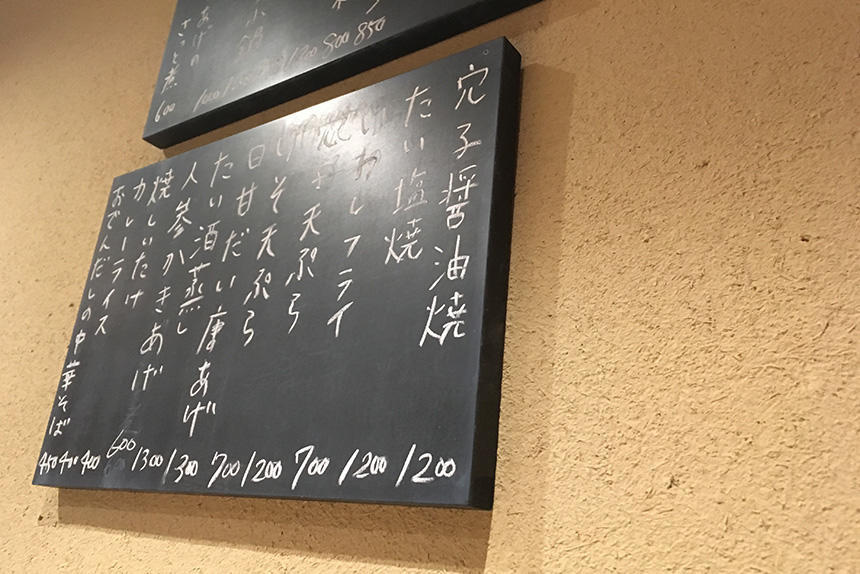 850
800
あげのさっと煮 600
穴子醤油焼 1200
たい塩焼 1200
フライ 700
穴子天ぷら 1200
しそ天ぷら 700
白甘だい唐あげ 1300
たい酒蒸し 1300
人参かきあげ 600
焼しいたけ 400
カレーライス 400
おでんだしの中華そば 450